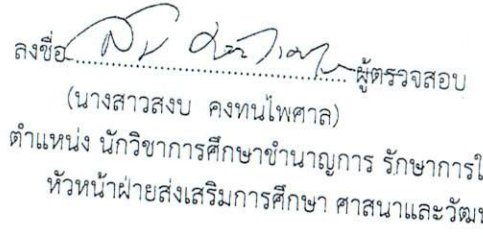 ลงชื่อ........................................ผู้ตรวจสอบ
(นางสาวสงบ คงทนไพศาล)
ตำแหน่ง นักวิชาการศึกษาชำนาญการ รักษาการใ
หัวหน้าฝ่ายส่งเสริมการศึกษา ศาสนาและวัฒ